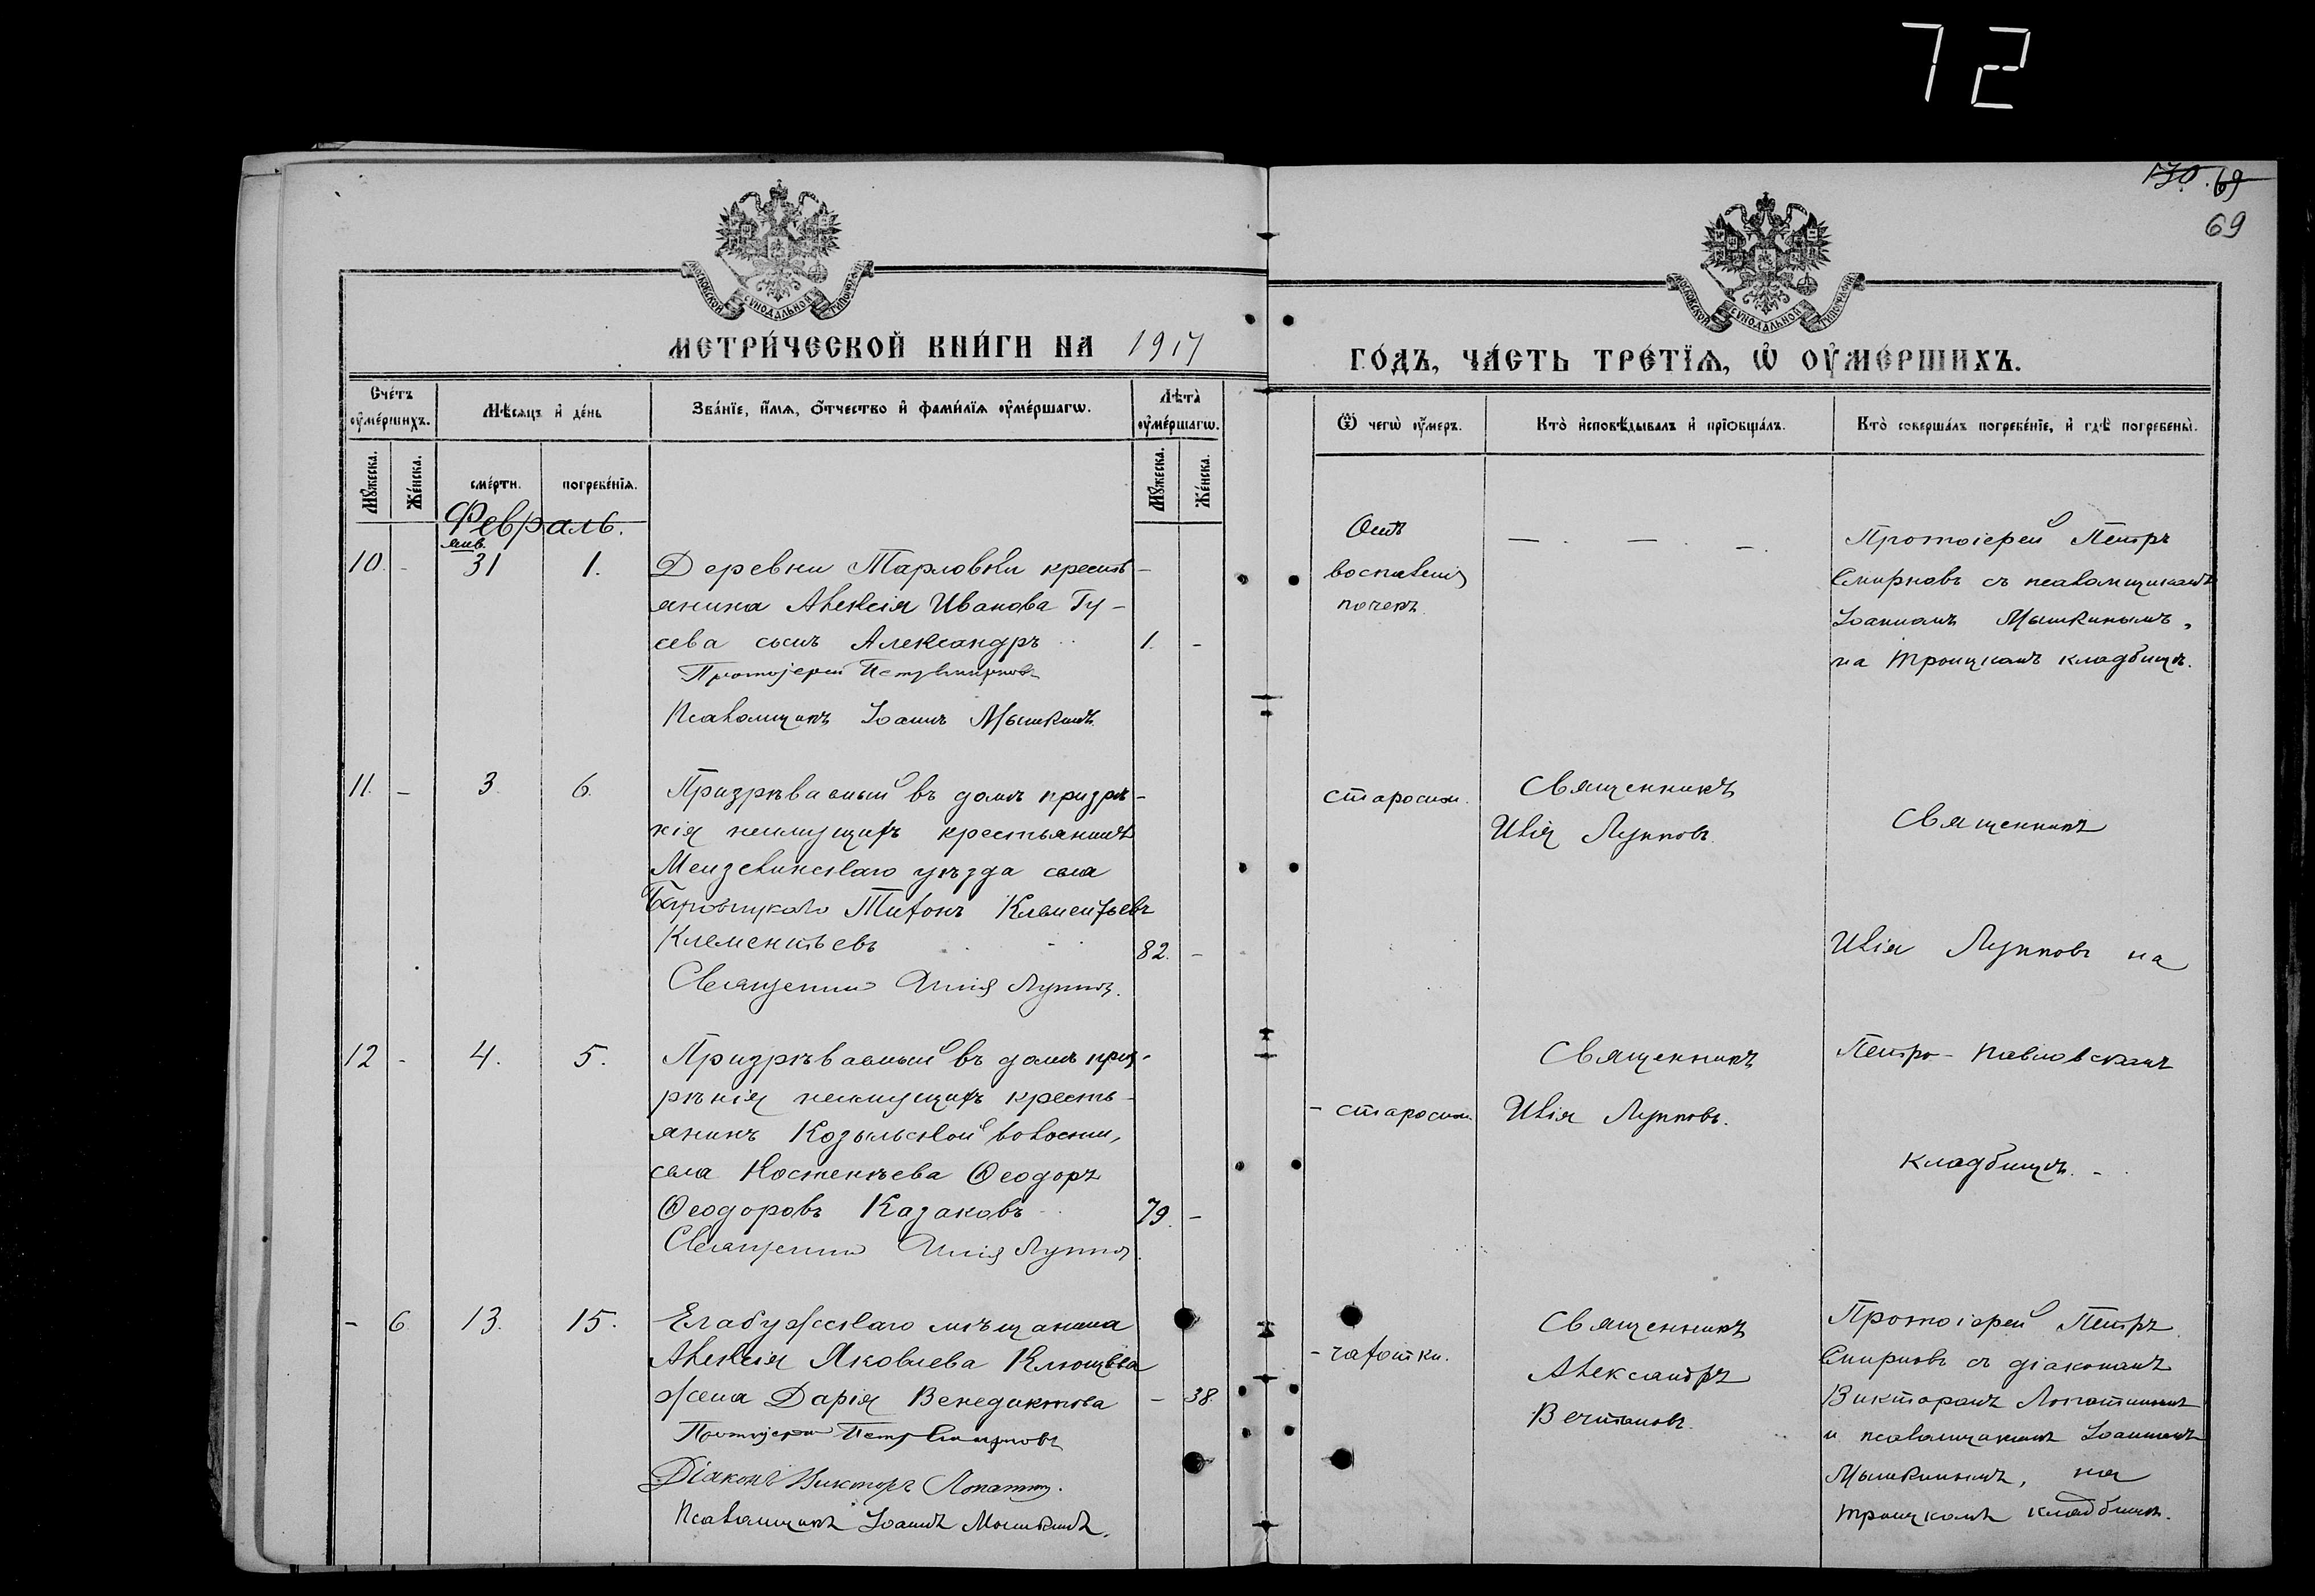 72
130. 69
69
МОСКОВСКОЙ СѴНОДАЛЬНОЙ ТИПОГРАФІИ
МОСКОВСКОЙ СѴНОДАЛЬНОЙ ТИПОГРАФІИ
МЕТРИ́ЧЕСКОЙ КНИ́ГИ НА 1917
ГО́ДЪ, ЧА́СТЬ ТРЕ́ТЇѦ, Ѡ҆ ОУ҆МЕ́РШИХЪ.
Сче́тъ оу҆ме́ршихъ.
Мѣ́сяцъ и҆ де́нь
Зва́нїе, и҆́мя, ѻ҆́тчество и҆ фами́лїя оу҆ме́ршагѡ.
Лѣ́та оу҆ме́ршагѡ.
Ѿ чегѡ̀ оу҆́меръ.
Кто̀ и҆сповѣ́дывалъ и҆ прїобща́лъ.
Кто̀ соверша́лъ погребе́нїе, и҆ гдѣ̀ погребены̀.
Мꙋ́жеска.
Же́нска.
сме́рти.
погребе́нїя.
Мꙋ́жеска.
Же́нска.
Февраль.
янв.
10. - 31 1.
Деревни Тарловки кресть-
янина Алексія Иванова Гу-
сева сынъ Александръ 1. -
Протоіерей Петръ Смирновъ
Псаломщикъ Іоаннъ Мышкинъ.
Отъ
воспаленія
почекъ
— . — . —.
Протоіерей Петръ
Смирновъ съ псаломщикомъ
Іоанномъ Мышкинымъ,
на Троицкомъ кладбищѣ.
11. - 3. 6.
Призрѣваемый въ домѣ призрѣ-
нія неимущихъ крестьянинъ
Мензелинскаго уѣзда села
Тихонъ Клементьевъ
Клементьевъ 82. -
Священникъ Илія Лупповъ.
старости.
Священникъ
Илія Лупповъ.
Священникъ
Илія Лупповъ на
12 - 4. 5.
Призрѣваемый въ домѣ приз-
рѣнія неимущихъ кресть-
янинъ Козыльской волости,
села Костенѣева Ѳеодоръ
Ѳеодоровъ Казаковъ 79. -
Священникъ Илія Лупповъ.
- старости.
Священникъ
Илія Лупповъ.
Петро-Павловскомъ
кладбищѣ. -
- 6 13. 15.
Елабужскаго мѣщанина
Алексія Яковлева Клюцева
жена Дарія Венедиктова - 38.
Протоіерей Петръ Смирновъ
Діаконъ Викторъ Лопатин.
Псаломщикъ Іоаннъ Мышкинъ.
- чахотки.
Священникъ
Александръ
Вечтомовъ.
Протоіерей Петръ
Смирновъ съ діакономъ
Викторомъ Лопатинымъ
и псаломщикомъ Іоанномъ
Мышкинымъ, на
троицкомъ кладбищѣ.